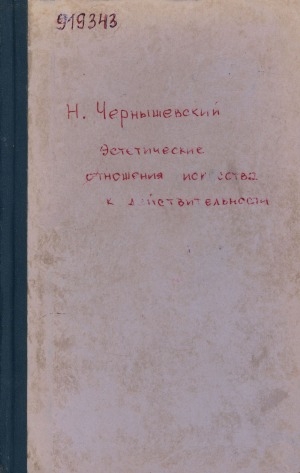 919343
Н. Чернышевский
Эстетические
отношения искусства
к действительности